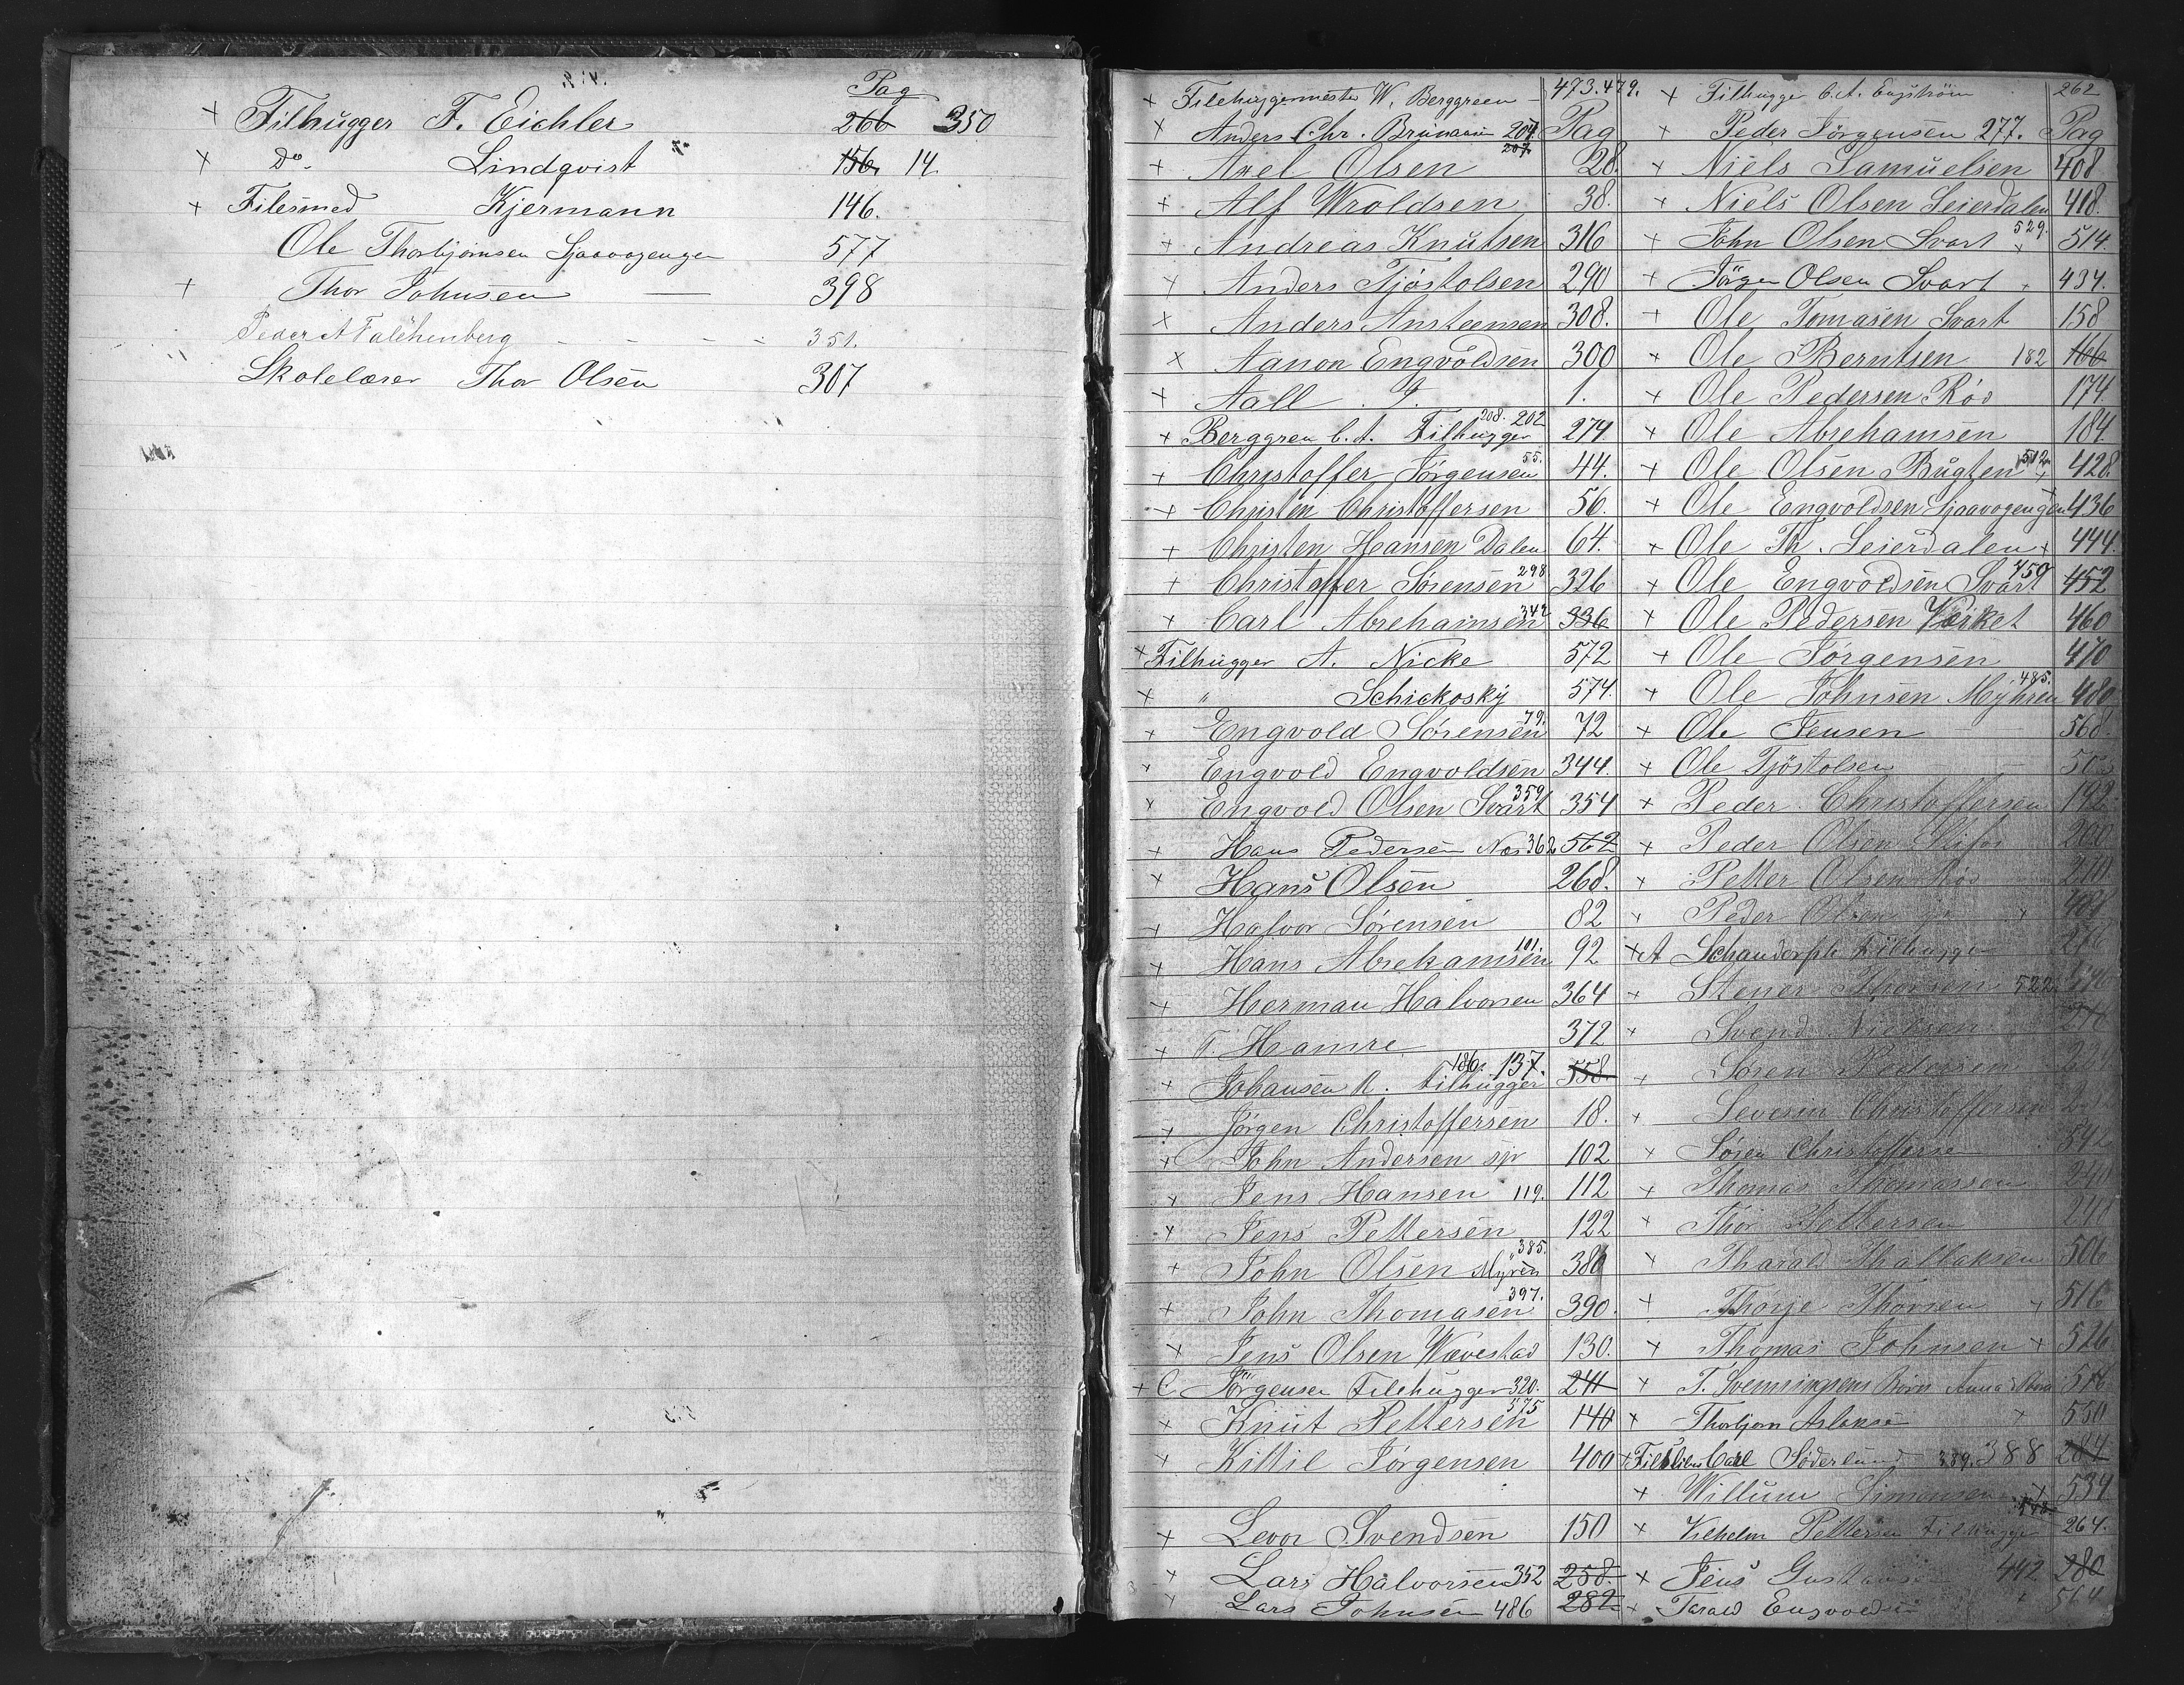 Pag
+ Filhugger F. Eichler 266 350
+ Do. Lindqvist 156 14.
+ Filesmed Kjermann 146.
Ole Thorbjørnsen Sjaavogengen 577
+ Thor Johnsen — 398
Peder A Falchenberg - - - - 351.
Skolelærer Thor Olsen 307
+ Filehuggermester W. Berggreen - 473.479.
+ Anders Chr. Brunaaen 204. Pag
207.
+ Axel Olsen 28.
+ Alf Wroldsen 38.
+ Andreas Knutsen 316
+ Anders Tjøstolsen 290
+ Anders Ansteensen 308.
+ Aanon Engvoldsen 300
+ Aall . J. 1.
+ Berggren C. A. Filhugger 208. 202 274.
+ Christoffer Jørgensen 55. 44.
+ Christen Christoffersen 56.
+ Christen Hansen Dalen 64.
+ Christoffer Sørensen 298 326
+ Carl Abrehamsen 342 336
+ Filhugger A. Nicke 572
+ " Schickosky 574.
+ Engvold Sørensen 79. 72
+ Engvold Engvoldsen 344.
+ Engvold Olsen Svart 359 354
+ Hans Pedersen Næs 362 562
+ Hans Olsen 268.
+ Halvor Sørensen 82
+ Hans Abrehamsen 101. 92
+ Herman Halvorsen 364
+ T. Hamre 372
+ Johansen A. Filhugger 186. 137. 558.
+ Jørgen Christoffersen 18.
+ John Andersen sjr 102
+ Jens Hansen 119. 112
+ Jens Pettersen 122
+ John Olsen Myren 385. 380
+ John Thomasen 397. 390.
+ Jens Olsen Wævestad 130.
+ C. Jörgensen Filehugger 320. 241
+ Knut Pettersen 375 140
+ Kittil Jørgensen 400
+ Levor Svendsen 150
+ Lars Halvorsen 352 258.
+ Lars Johnsen 486 282
+ Filhugge C. A. Engström 262
+ Peder Jørgensen 277. Pag
+ Niels Samuelsen 408
+ Niels Olsen Leierdalen 418.
+ John Olsen Svart 529. + 514.
+ Jörgen Olsen Svart + 434.
+ Ole Tomasen Svart 158
+ Ole Berntsen 182 166
+ Ole Pedersen Röd 174.
+ Ole Abrehamsen 184.
+ Ole Olsen Bugten 512 + 428.
+ Ole Engvoldsen Sjaavogengen 436
+ Ole Th. Leierdalen + 444.
+ Ole Engvoldsen Svart 450 452
+ Ole Pedersen Værket 460
+ Ole Jörgensen 470
+ Ole Johnsen Myhren 485. 480
+ Ole Jensen 568.
+ Ole Tjöstolsen
+ Peder Christoffersen 192
+ Peder Olsen 200
+ Petter Olsen Röd 210
+ Peder Olsen
+ A Schandorph Filhugger
+ Stener Thorsen 522
+ Svend Nielsen
+ Søren Pedersen
+ Severin Christoffersen
+ Søren Christofferse 542
+ Thomas Thomassen 240
+ Thor Pettersen
+ Tharald Thalleksen 506
+ Thorje Thorsen + 516
+ Thomas Johnsen + 526
+ T. Svenningsens Börn Anna
+ Thorbjørn Aslaksen + 550
+ Carl Söderlund 389. 388 284
+ Willum Simonsen + 534
+ Vilhelm Pettersen Filhugger 264.
+ Jens Gustavse 442 280
+ Tarald Engvoldsen + 564